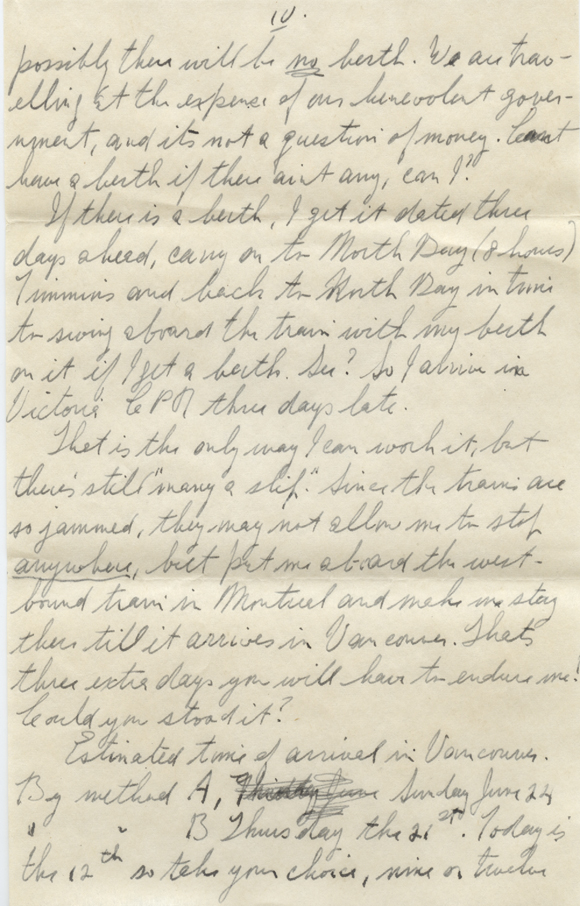 IV.
possibly there will be no berth. We are trav-
elling at the expense of our benevolent gover-
nment, and its not a question of money. Cant
have a berth if there aint any, can I?
If there is a berth, I get it dated three
days ahead, carry on to North Bay (8 hours)
Timmins and back to North Bay in time
to swing aboard the train with my berth
on it if I get a berth. See? So I arrive in
Victoria CPR three days late.
That is the only way I can work it, but
there's still "many a slip." Since the trains are
so jammed, they may not allow me to stop
anywhere, but put me aboard the west-
bound train in Montreal and make me stay
there till it arrives in Vancouver. Thats
three extra days you will have to endure me!
Could you stand it?
Estimated time of arrival in Vancouver.
By method A, Sunday June 24
" " B Thursday the 21st. Today is
the 12th so take your choice, nine or twelve